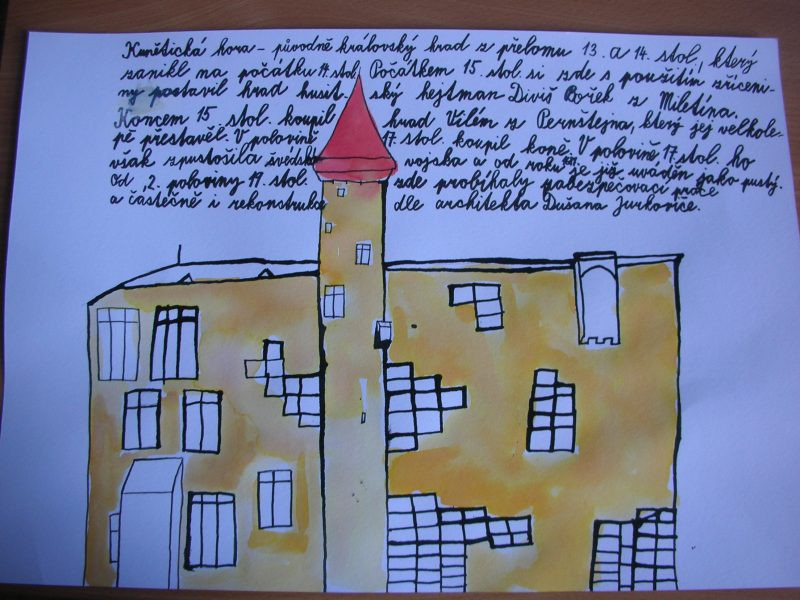 Kunětická hora – původně královský hrad z přelomu 13. a 14. stol., který
zanikl na počátku 14. stol. Počátkem 15. stol. si zde s použitím zříceni-
ny postavil hrad husit- ský hejtman Diviš Bořek z Miletína.
Koncem 15. stol. koupil hrad Vilém z Pernštejna, který jej velkole-
pě přestavěl. V polovině 17. stol. koupil koně. V polovině 17. stol. ho
však zpustošila švédsk vojska a od roku je již uváděn jako pustý.
Od 2. poloviny 19. stol. zde probíhaly zabezpečovací práce
a částečně i rekonstrukce dle architekta Dušana Jurkoviče.